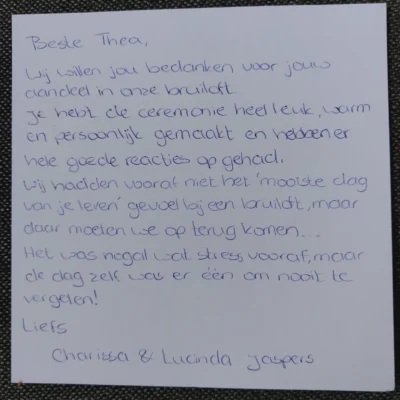 Beste Thea,
Wij willen jou bedanken voor jouw
aandeel in onze bruiloft
Je hebt de ceremonie heel leuk, warm
en persoonlijk gemaakt en hebben er
hele goede reacties op gehad.
Wij hadden vooraf niet het 'mooiste dag
van je leven' gevoel bij een bruiloft, maar
daar moeten we op terug komen...
Het was nogal wat stress vooraf, maar
de dag zelf was er één om nooit te
vergeten!
Liefs
Charissa & Lucinda Jaspers